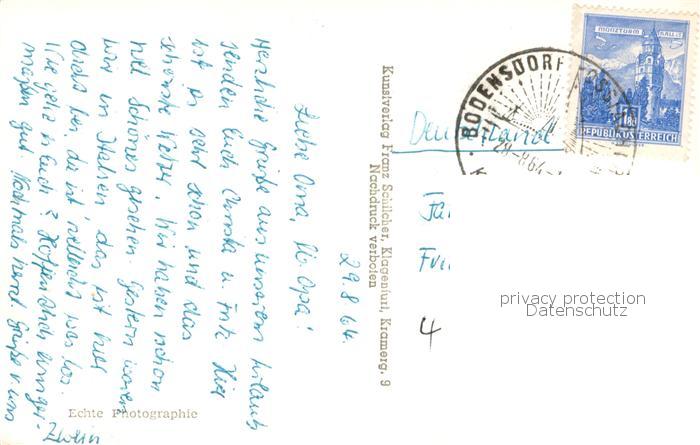 29.8.64.
Liebe Oma, lb. Opa!
Herzliche Grüße aus unserem Urlaub
senden Euch Christa u. Fritz. Hier
ist es sehr schön und das
schönste Wetter. Wir haben schon
viel Schönes gesehen. Gestern waren
wir in Italien das ist hier
da ist vielleicht was los.
Wie geht es Euch? Hoffentlich einiger-
maßen gut. Nochmals herzl. Grüße v. uns
Zwein
Echte Photographie
Kunstverlag Franz Schilcher, Klagenfurt, Kramerg. 9
Nachdruck verboten
MÜNZTURM HALL i.T.
REPUBLIK ÖSTERREICH
BODENSDORF
29.8.64
Deutschland
4
privacy protection
Datenschutz